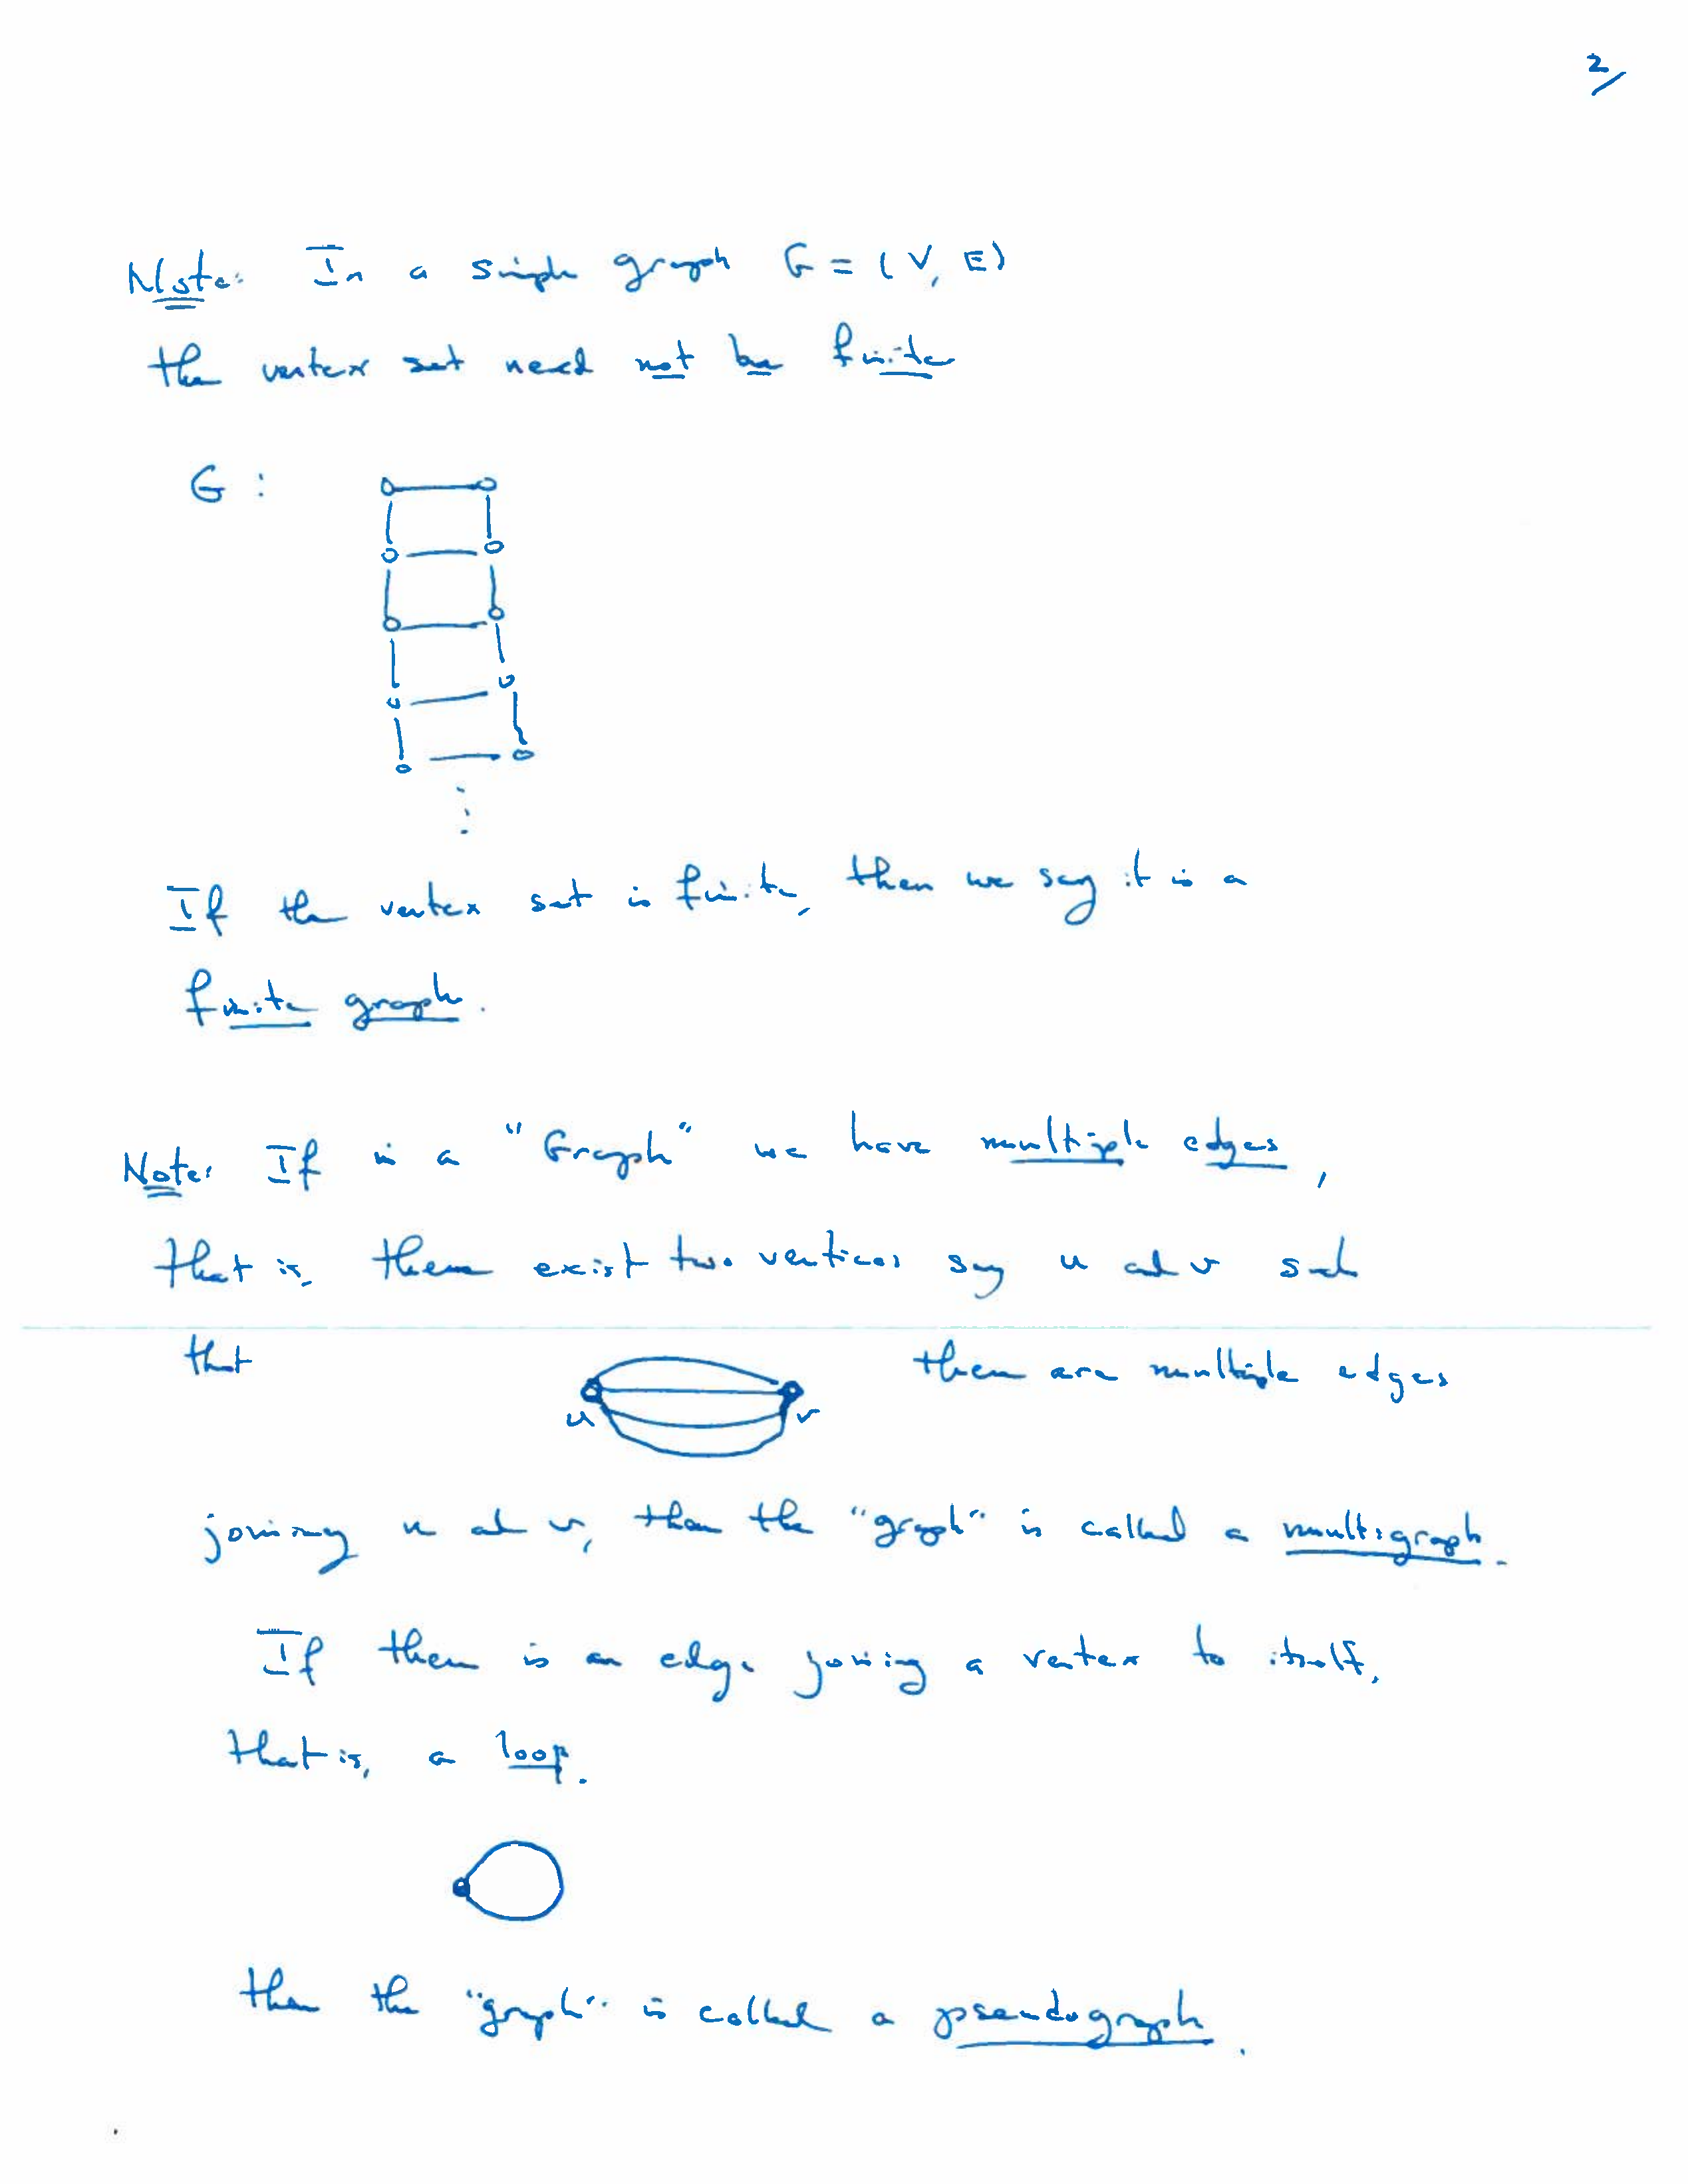 2/
Note: In a simple graph G = (V, E)
the vertex set need not be finite
G :
⋮
If the vertex set is finite, then we say it is a
finite graph.
Note: If in a "Graph" we have multiple edges,
that is, there exist two vertices say u and v such
that there are multiple edges
u v
joining u and v, then the "graph" is called a multigraph.
If there is an edge joining a vertex to itself,
that is, a loop.
then the "graph" is called a pseudograph.